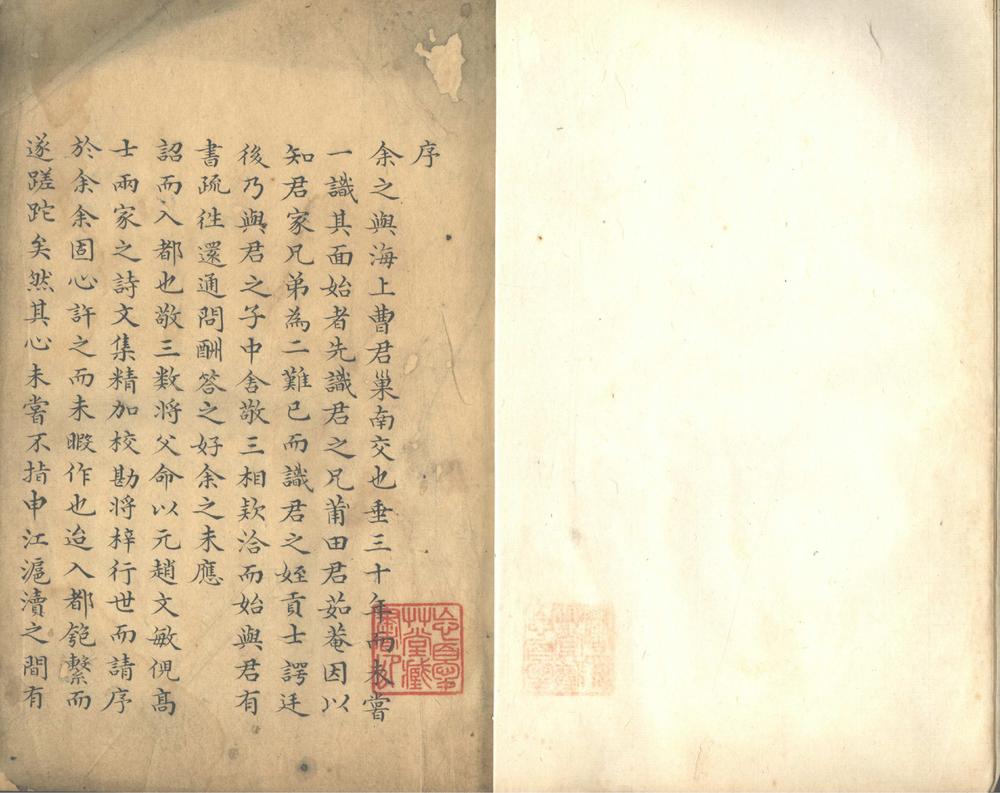 序
余之與海上曹君巢南交也垂三十年而未嘗
一識其面始者先識君之兄莆田君茹菴因以
知君家兄弟為二難已而識君之姪貢士諤廷
後乃與君之子中舍敬三相欵洽而始與君有
書疏徃還通問酬答之好余之未應
詔而入都也敬三数將父命以元趙文敏倪髙
士兩家之詩文集精加校勘將梓行世而請序
於余余固心許之而未暇作也迨入都匏繫而
遂蹉跎矣然其心未嘗不指申江滬瀆之間有